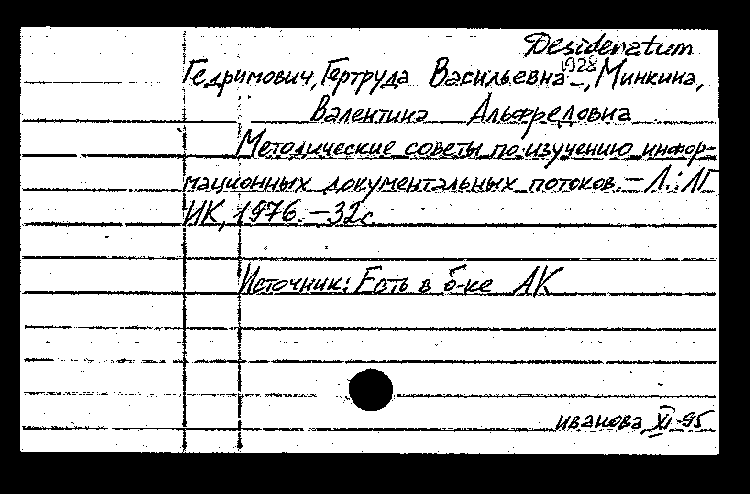 Desideratum
1928
Гедримович, Гертруда Васильевна –, Минкина,
Валентина Альфредовна
Методические советы по изучению инфор-
мационных документальных потоков. – Л.: ЛГ
ИК, 1976. – 32с.
Источник: Есть в б-ке АК
иванова XI-95